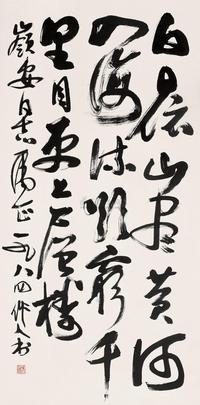 白日依山尽黄河
入海流欲窮千
里目更上一層樓
嶺安同志属正一九八四作人书